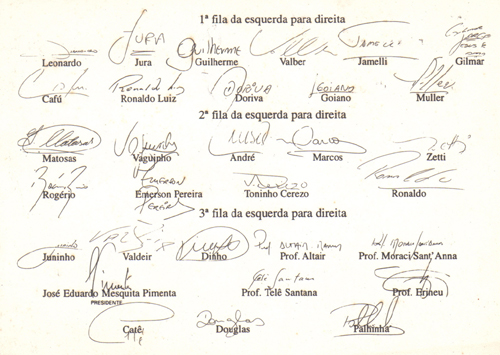 1ª fila da esquerda para direita
Leonardo Jura Guilherme Valber Jamelli Gilmar
Cafú Ronaldo Luiz Doriva Goiano Muller
2ª fila da esquerda para direita
Matosas Vaguinho André Marcos Zetti
Rogério Emerson Pereira Toninho Cerezo Ronaldo
3ª fila da esquerda para direita
Juninho Valdeir Dinho Prof. Altair Prof. Moraci Sant'Anna
José Eduardo Mesquita Pimenta Prof. Telê Santana Prof. Erineu
PRESIDENTE
Catê Douglas Palhinha